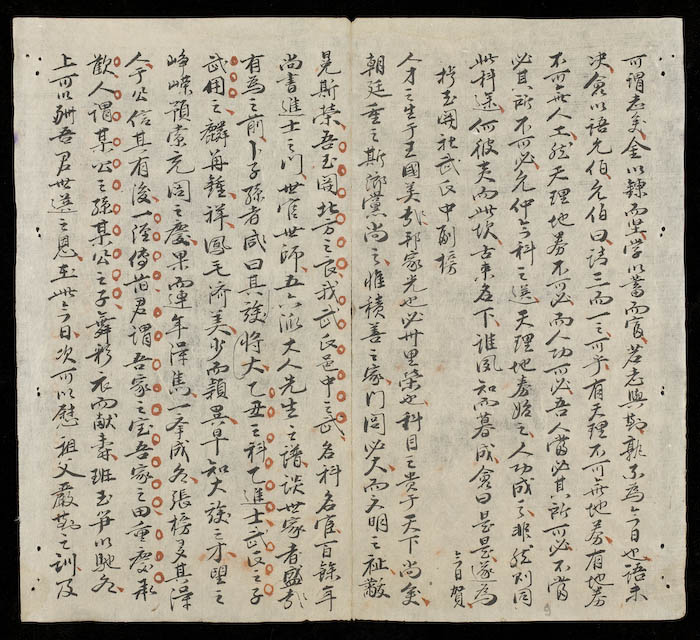 可謂志矣金以鍊而堅學以蓄而富若志與期為今日也語未
决余以語允伯允伯曰語三而一之可乎有天理不可無地券有地券
不可無人工然天理地券不可必而人功可必吾人當必其所可必不當
必其所不可必允仲今科之選天理地券始之人功成之非然則同
此科選何彼爽而此古來名下誰夙知而暮成僉曰是是遂為
今日賀
玉岡社武氏中副榜
人才之生于王國美哉邦家光也必里榮也科目之貴于天下尚矣
朝廷重之斯鄉黨尚之惟積善之家門閭必大而文明之祉敵
晃斯榮吾玉岡北方之良我武氏邑中之武名科名宦百餘年
尚書進士之門世官世師五六派大人先生之譜談世家者盛哉
有為之前卜子孫者咸曰其後將大乙丑之科乙進士武氏之子
武用之麟再鍾祥鳳毛濟美少而穎異早知大之才之
崢嶸預素充閭之慶果而連年澤雋一举成名張榜多其澤
人于公信其有後一經傳昔君謂吾家之宝吾家之由重慶承
歡人謂某公之孫某公之子舞彩衣而献壽班玉笋以馳名
上可以酬吾君世選之恩在此今日次可以慰祖父嚴勤之訓及